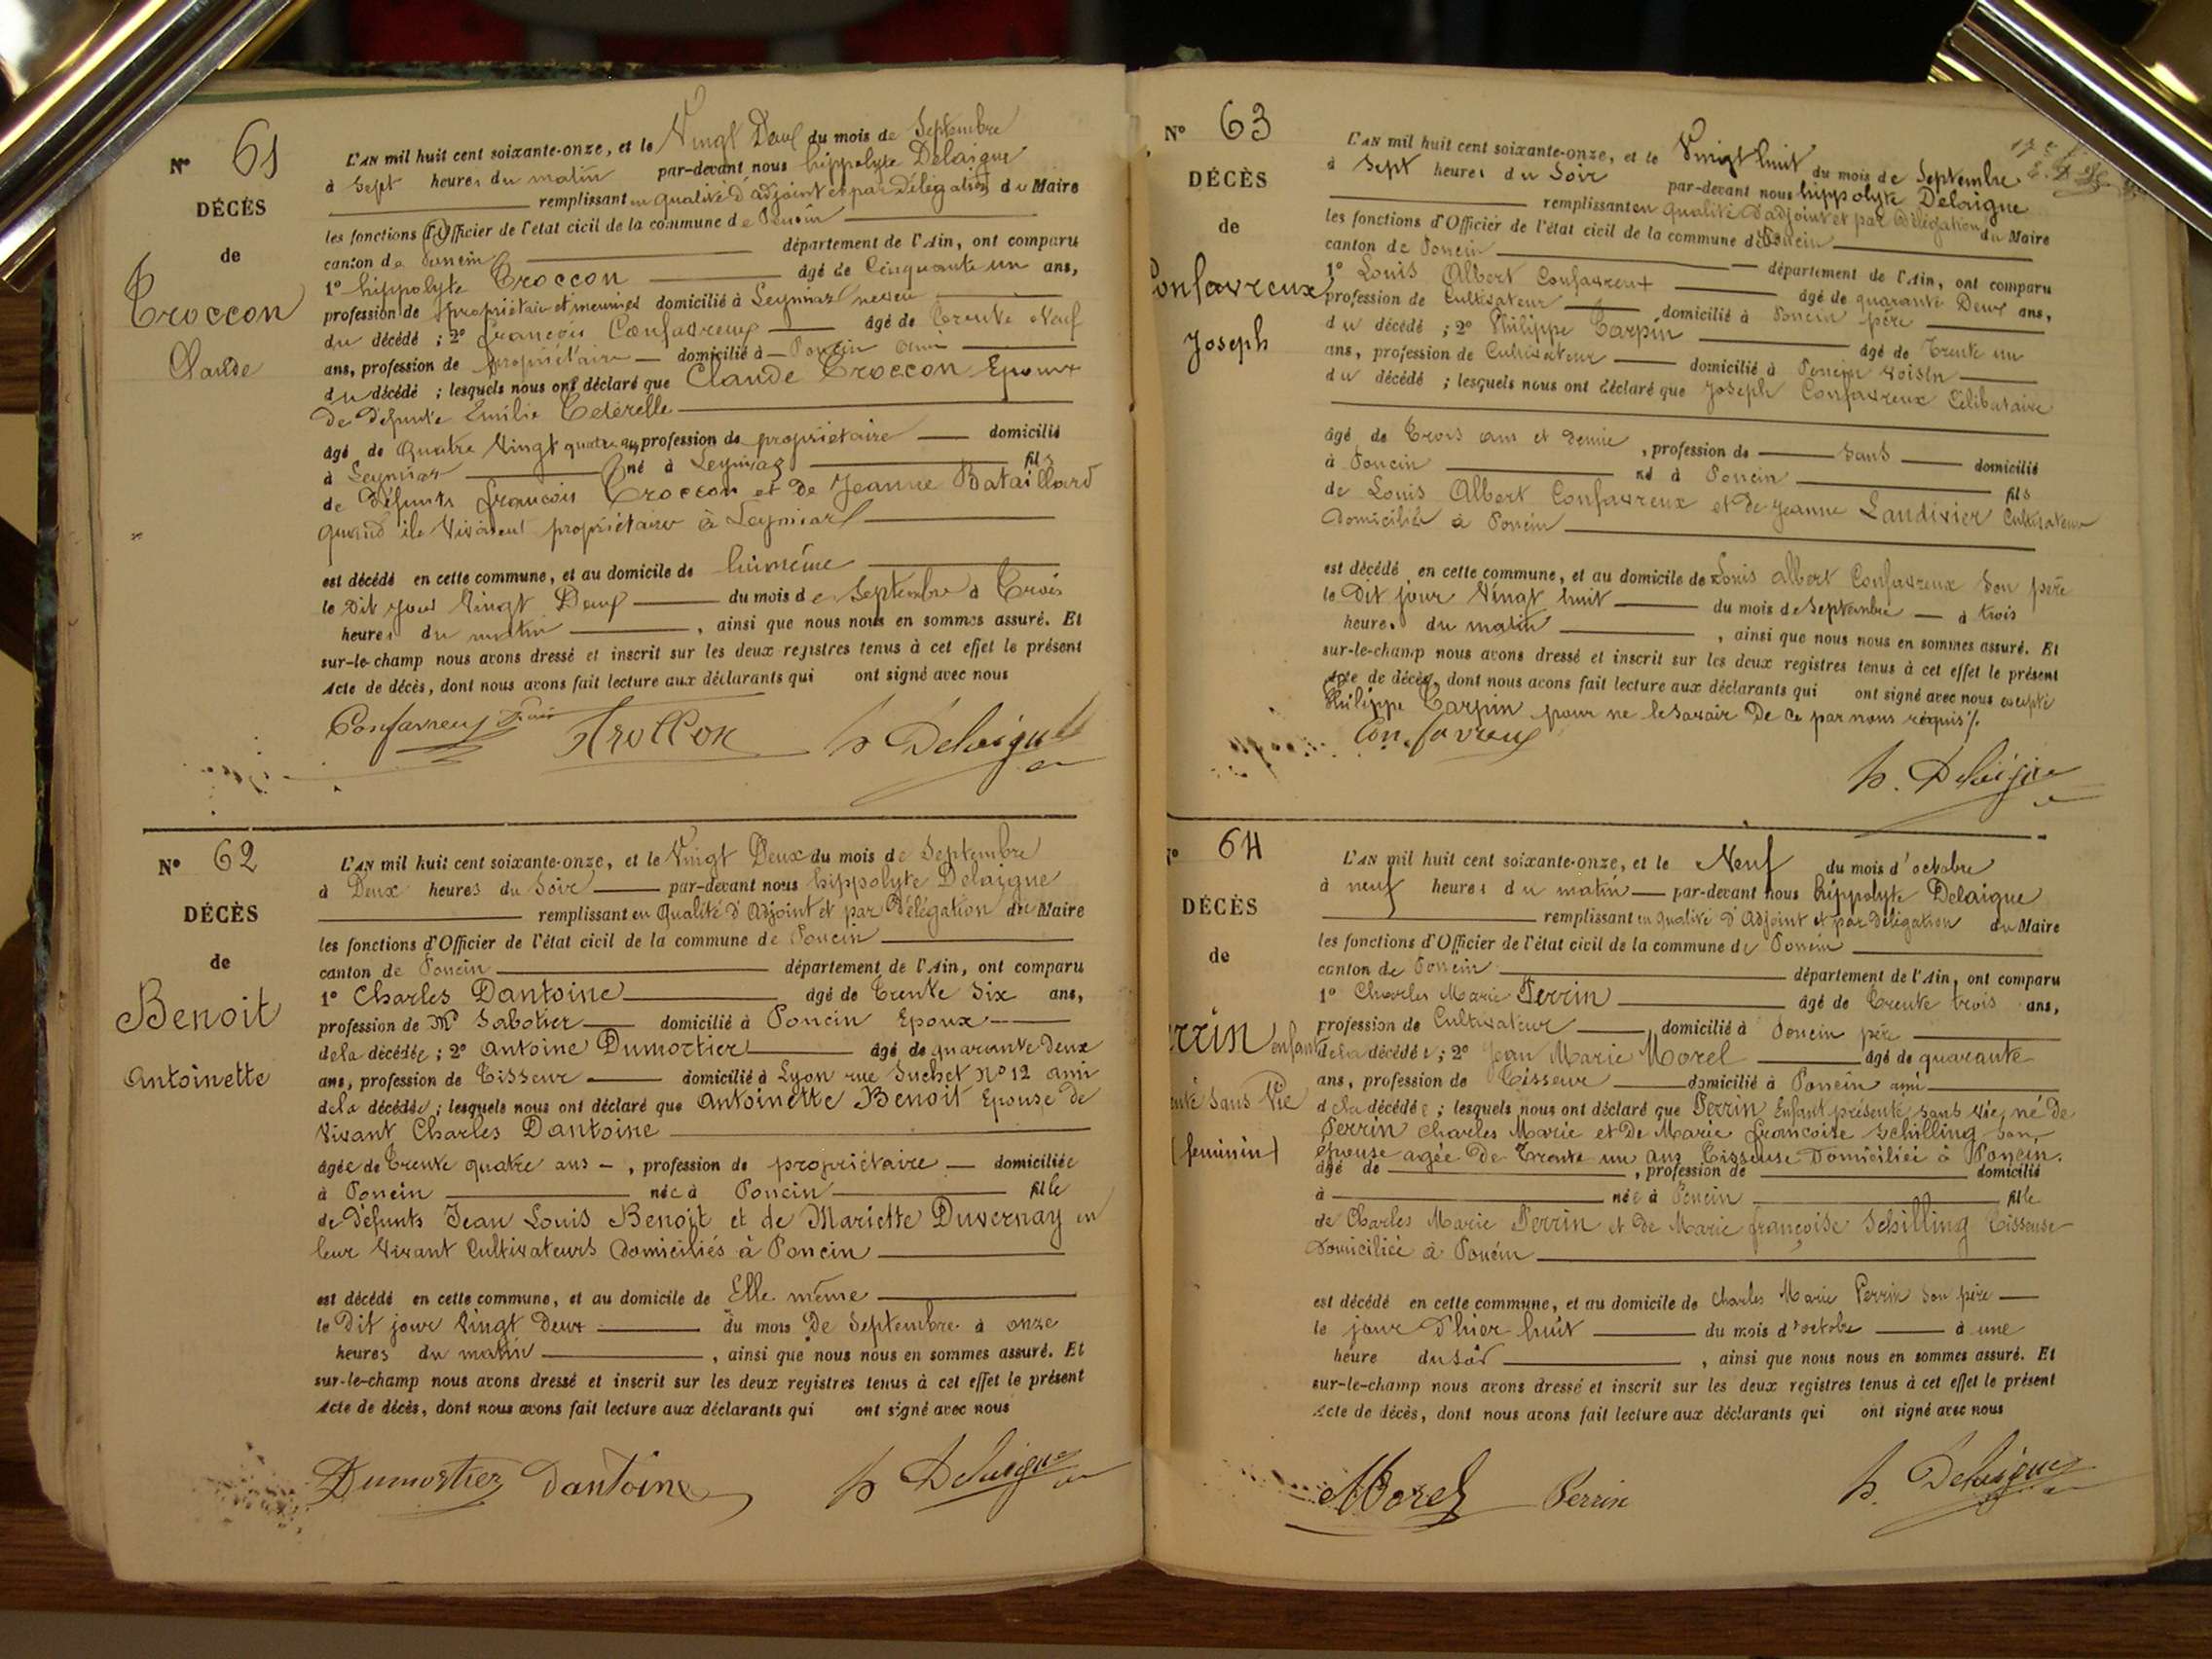 N° 61
DÉCÈS
de
Troccon
Claude
L'AN mil huit cent soixante-onze, et le Vingt Deux du mois de Septembre
à Sept heures du matin par-devant nous hippolyte Delaigue
remplissant en qualité d'adjoint et par Délégation du Maire
les fonctions d'Officier de l'état civil de la commune de Poncin
canton de Poncin département de l'Ain, ont comparu
1° hippolyte Troccon âgé de Cinquante un ans,
profession de propriétaire et meunier domicilié à Leymiaz neveu
du décédé ; 2° françois Confavreux âgé de Trente Neuf
ans, profession de propriétaire domicilié à Poncin ami
du décédé ; lesquels nous ont déclaré que Claude Troccon Epoux
de défunte Emilie
âgé de Quatre Vingt quatre ans, profession de propriétaire domicilié
à Leymiaz né à Leymiaz fils
de Défunts françois Troccon et de Jeanne Bataillard
quand ils Vivaient propriétaires à Leymiaz
est décédé en cette commune, et au domicile de lui même
le Dit jour Vingt Deux du mois de Septembre à Trois
heures du matin, ainsi que nous nous en sommes assuré. Et
sur-le-champ nous avons dressé et inscrit sur les deux registres tenus à cet effet le présent
Acte de décès, dont nous avons fait lecture aux déclarants qui ont signé avec nous
Confavreux Troccon h Delaigue
N° 62
DÉCÈS
de
Benoit
Antoinette
L'AN mil huit cent soixante-onze, et le Vingt Deux du mois de Septembre
à Deux heures du Soir par-devant nous hippolyte Delaigue
remplissant en Qualité d'Adjoint et par Délégation du Maire
les fonctions d'Officier de l'état civil de la commune de Poncin
canton de Poncin département de l'Ain, ont comparu
1° Charles Dantoine âgé de Trente Six ans,
profession de Md Sabotier domicilié à Poncin Epoux
de la décédée ; 2° Antoine Dumortier âgé de quarante deux
ans, profession de Tisseur domicilié à Lyon rue Suchet N° 12 ami
de la décédée ; lesquels nous ont déclaré que Antoinette Benoit Epouse de
Vivant Charles Dantoine
âgée de Trente quatre ans, profession de propriétaire domiciliée
à Poncin née à Poncin fille
de défunts Jean Louis Benoit et de Mariette Duvernay en
leur Vivant Cultivateurs Domiciliés à Poncin
est décédé en cette commune, et au domicile de Elle même
le Dit jour Vingt deux du mois De Septembre à onze
heures du matin, ainsi que nous nous en sommes assuré. Et
sur-le-champ nous avons dressé et inscrit sur les deux registres tenus à cet effet le présent
Acte de décès, dont nous avons fait lecture aux déclarants qui ont signé avec nous
Dumortier Dantoine h Delaigue
N° 63
DÉCÈS
de
Confavreux
Joseph
L'AN mil huit cent soixante-onze, et le Vingt huit du mois de Septembre
à Sept heures du Soir par-devant nous hippolyte Delaigue
remplissant en Qualité d'adjoint et par Délégation du Maire
les fonctions d'Officier de l'état civil de la commune de Poncin
canton de Poncin département de l'Ain, ont comparu
1° Louis Albert Confavreux âgé de quarante Deux ans,
profession de Cultivateur domicilié à Poncin père
du décédé ; 2° Philippe Carpin âgé de Trente un
ans, profession de Cultivateur domicilié à Poncin voisin
du décédé ; lesquels nous ont déclaré que Joseph Confavreux Célibataire
âgé de Trois ans et demie, profession de Sans domicilié
à Poncin né à Poncin fils
de Louis Albert Confavreux et de Jeanne Landivier Cultivateurs
Domiciliés à Poncin
est décédé en cette commune, et au domicile de Louis albert Confavreux Son père
le Dit jour Vingt huit du mois de Septembre à trois
heures du matin, ainsi que nous nous en sommes assuré. Et
sur-le-champ nous avons dressé et inscrit sur les deux registres tenus à cet effet le présent
Acte de décès, dont nous avons fait lecture aux déclarants qui ont signé avec nous excepté
Philippe Carpin pour ne le Savoir De Ce par nous requis.
Confavreux
h. Delaigue
N° 64
DÉCÈS
de
rrin enfant
enté Sans Vie
(féminin)
L'AN mil huit cent soixante-onze, et le Neuf du mois d'octobre
à neuf heures du matin par-devant nous hippolyte Delaigue
remplissant en qualité d'Adjoint et par Délégation du Maire
les fonctions d'Officier de l'état civil de la commune de Poncin
canton de Poncin département de l'Ain, ont comparu
1° Charles Marie Perrin âgé de Trente trois ans,
profession de Cultivateur, domicilié à Poncin père
de la décédée ; 2° Jean Marie Morel âgé de quarante
ans, profession de Tisseur domicilié à Poncin ami
de la décédée ; lesquels nous ont déclaré que Perrin Enfant présenté sans vie, né de
Perrin Charles Marie et De Marie françoise Schilling Son
épouse agée De Trente un ans Tisseuse Domiciliée à Poncin.
âgé de , profession de domicilié
à née à Poncin fille
de Charles Marie Perrin et De Marie françoise Schilling Tisseuse
Domiciliée à Poncin
est décédé en cette commune, et au domicile de Charles Marie Perrin Son père
le jour D'hier huit du mois d'octobre à une
heure du Soir, ainsi que nous nous en sommes assuré. Et
sur-le-champ nous avons dressé et inscrit sur les deux registres tenus à cet effet le présent
Acte de décès, dont nous avons fait lecture aux déclarants qui ont signé avec nous
Morel Perrin h. Delaigue